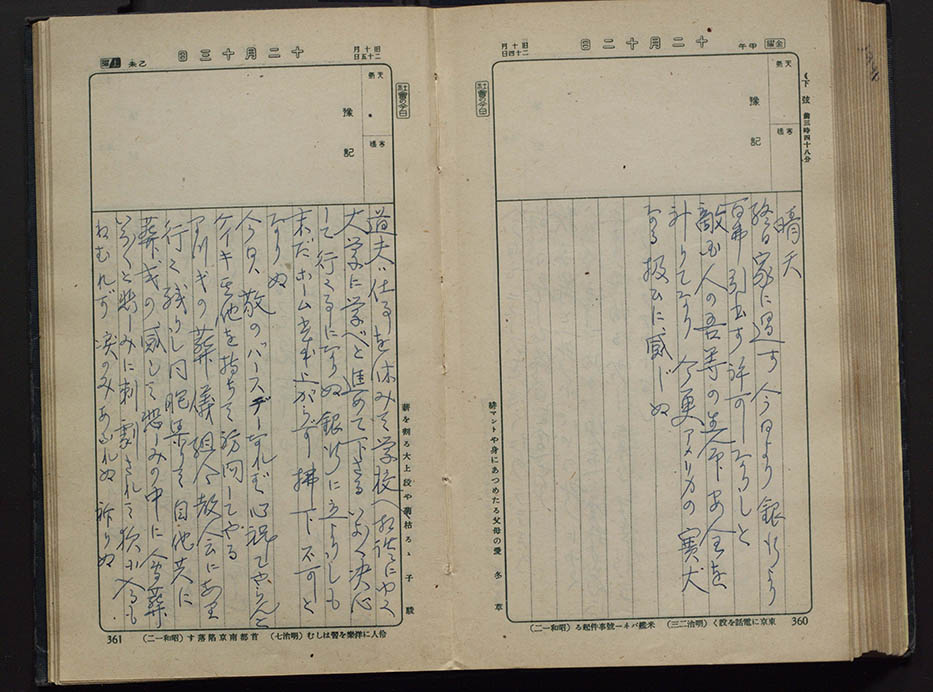 金曜
甲午
十二月十二日
旧十月
二十四日
(下弦 前三時四十八分
天気
寒暖
豫記
社會の今日
晴天
終日家に過す 今日より銀行より
引出す許可
敵国人の吾等の生命安全を
計りてなり 今更アメリカの寛大
なる扱ひに感じぬ
緋マントや身にあつめたる父母の愛 冬草
東京に電話を設く(明治二三) 米艦パネー號事件起る(昭和一二)
360
十二月十三日
乙未
土曜
旧十月
二十五日
天気
寒暖
豫記
社會の今日
道夫は仕事を休みて学校へ相談にゆく
大学に学べと進めて下さる いよく決心
して行くことになりぬ 銀行に立よりしも
未だホーム 払下不可と
なりぬ
今日は敬のバースデーなれば心祝してやらんと
ケイキ其他を持ちて訪問してやる
葬儀組合教会にあり
行く 残りし同胞集りて自他共に
葬式の感じて悲しみの中に
いろくと悲しみに刺激されて
ねむれず 涙のみあふれぬ 祈りぬ
薪を割る大上段や菊枯るゝ 子駿
伶人に洋樂を習はしむ(明治七) 首都南京陥落す(昭和一二)
361